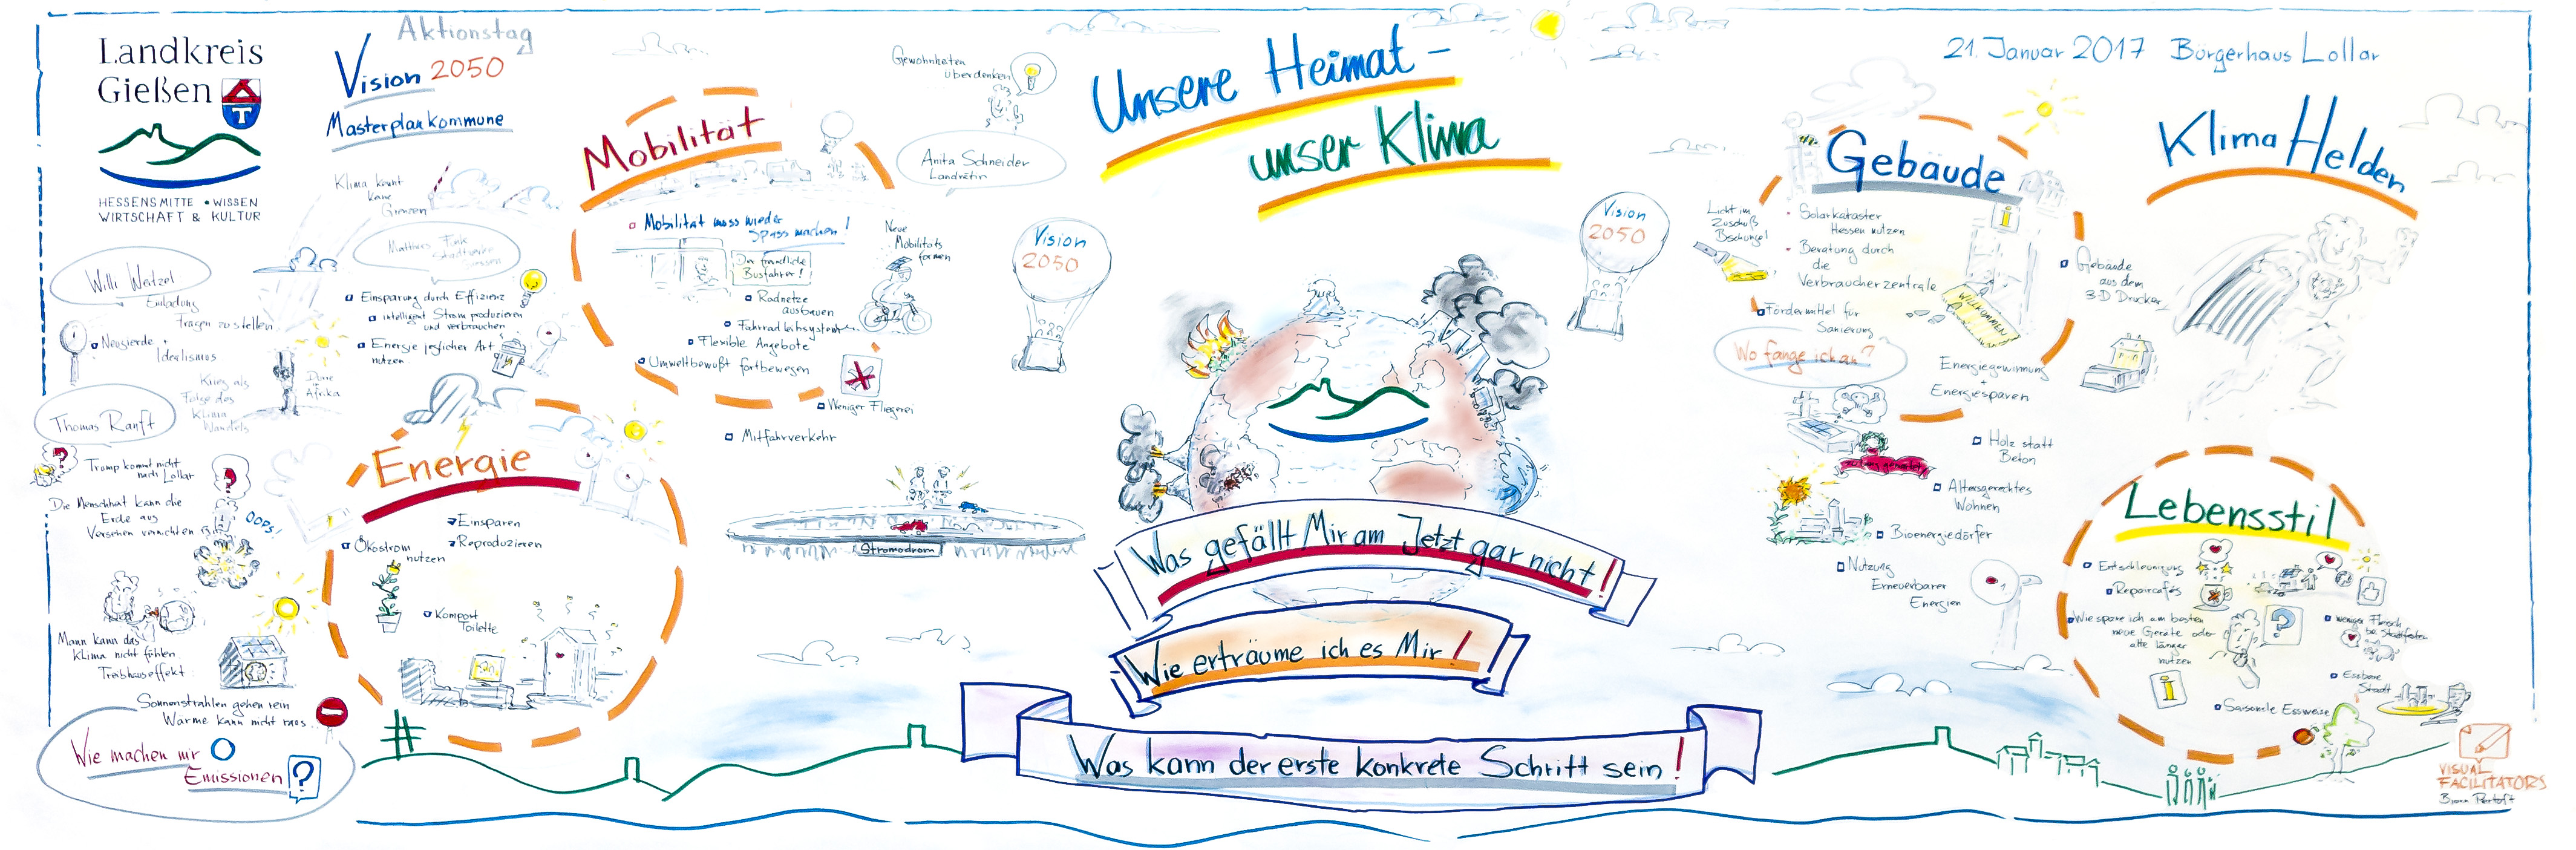 Landkreis
Gießen
HESSENSMITTE • WISSEN
WIRTSCHAFT & KULTUR
Aktionstag
Vision 2050
Masterplankommune
Klima kennt
keine
Grenzen
Willi Weitzel
Einladung
Fragen zu stellen
Neugierde
Idealismus
Krieg als
Folge des
Klima
Wandels
Dürre
Afrika
Thomas Ranft
?
Trump kommt nicht
nach Lollar
Die Menschheit kann die
Erde aus
Versehen vernichten
?
OOPS!
Mann kann das
Klima nicht fühlen
Treibhauseffekt
Sonnenstrahlen gehen rein
Wärme kann nicht raus
Wie machen wir 0
Emissionen ?
Matthias Funk
Stadtwerke
Giessen
Einsparung durch Effizienz
intelligent Strom produzieren
und verbrauchen
Energie jeglicher Art
nutzen
Energie
Einsparen
Reproduzieren
Ökostrom
nutzen
Kompost
Toilette
Mobilität
Mobilität muss wieder
Spass machen!
Der freundliche
Busfahrer!
Neue
Mobilitäts
formen
Radnetze
ausbauen
Fahrradleihsysteme
Flexible Angebote
Umweltbewußt fortbewegen
Weniger Fliegerei
Mitfahrverkehr
Stromodrom
Gewohnheiten
überdenken
Anita Schneider
Landrätin
Vision
2050
Unsere Heimat -
unser Klima
Vision
2050
Was gefällt Mir am Jetzt gar nicht!
Wie erträume ich es Mir!
Was kann der erste konkrete Schritt sein!
21. Januar 2017 Bürgerhaus Lollar
Gebäude
Licht im
Zuschuß
Dschungel
Solarkataster
Hessen nutzen
Beratung durch
die
Verbraucherzentrale
Fördermittel für
Sanierung
i
WILLKOMMEN
Wo fange ich an?
Energiegewinnung
+
Energiesparen
Gebäude
aus dem
3-D Drucker
Holz statt
Beton
Altersgerechtes
Wohnen
Bioenergiedörfer
Nutzung
Erneuerbarer
Energien
Klima Helden
Lebensstil
Entschleunigung
Repaircafés
Wie spare ich am besten
neue Geräte oder
alte länger
nutzen
?
i
weniger Fleisch
bei Stadtfesten
Essbare
Stadt
Saisonale Essweise
VISUAL
FACILITATORS